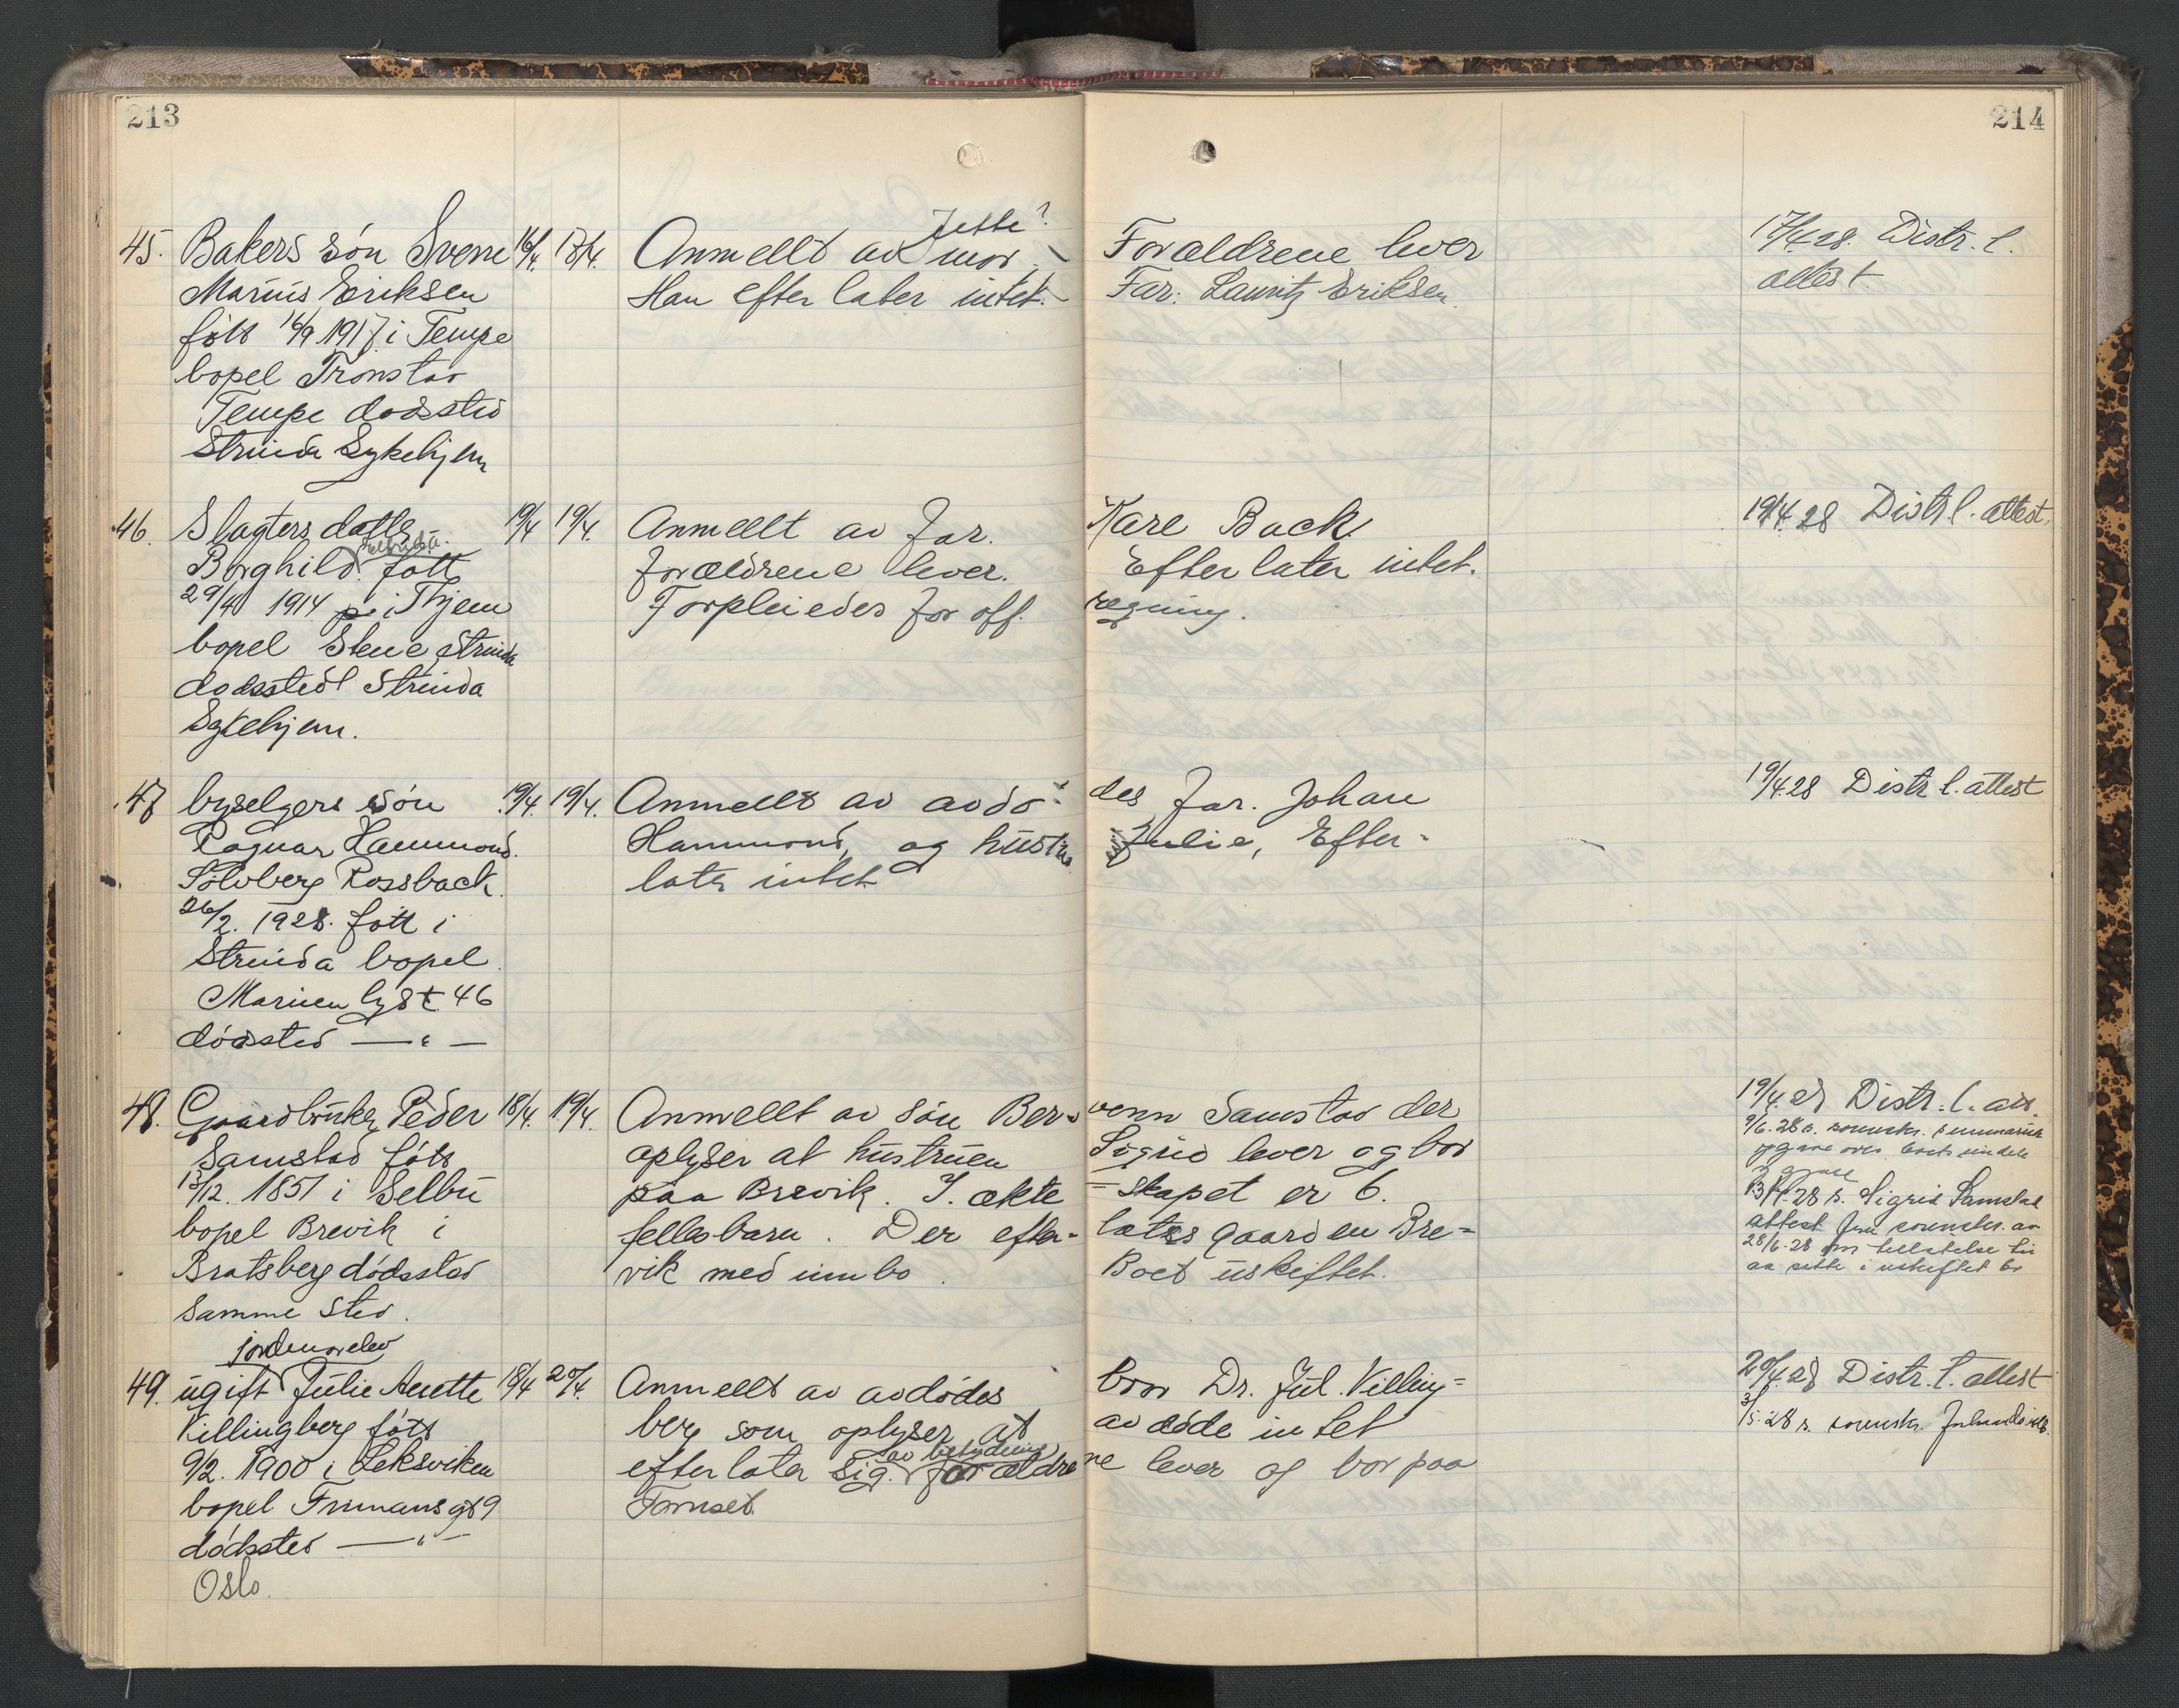 213
214
45. Bakers søn Sverre 16/4. 17/4. Anmeldt av mor Jette? Forældrene lever 17/4 28. Distr. l.
Marius Eriksen Han efterlater intet. Far: Lauritz Eriksen. attest.
født 16/9 1917 i Tempe
bopel Tronstad
Tempe dødssted
Strinda Sykehjem
46. Slagters datter 19/4 19/4. Anmeldt av far. Kare Back. 19/4 28 Distr l. attest.
Borghild født forældrene lever. Efterlater intet.
29/4 1914 i Thjem Forpleiedes for off. regning.
bopel Stene, Strinda
dødssted Strinda
Sykehjem.
47 byselgers søn 19/4. 19/4. Anmeldt av avdø- des far. Johan 19/4 28 Distr l. attest
Ragnar Hammond. Hammond, og hustru Julie, Efter-
Sølvberg Rossback. later intet
26/2. 1928. født i
Strinda bopel
Marienlyst 46
dødssted — " —
48. Gaardbruker Peder 18/4. 19/4. Anmeldt av søn Ber- nenn Samstad der 19/4 28 Distr. l. att.
Samstad født oplyser at hustruen Sigrid lever og bor 9/6. 28 s. sorenskr. summarisk
13/12. 1851 i Selbu paa Brevik. I. ekte =skapet er 6. opgave over boets eiendele
bopel Brevik i fellesbarn. Der efter- lates gaarden Bre= og gjæld
Bratsberg dødssted vik med innbo. Boet uskiftet. 28 s. Sigrid Samstad
samme sted. attest fra sorenskr. av
28/6-28 om tillatelse til
aa sitte i uskiftet bo
jordmorelev
49. ugift Julie Anette 18/4 20/4. Anmeldt av avdødes bror Dr. Jul. Villing= 20/4 28 Distr. l. attest
Villingberg født berg som oplyser at avdøde intet 3/5. 28 s. sorenskr.
9/2. 1900 i Leksviken av betydning
efterlater sig. forældre ne lever og bor paa
bopel Trumansgt 9 Tornset.
dødssted — " —
Oslo.